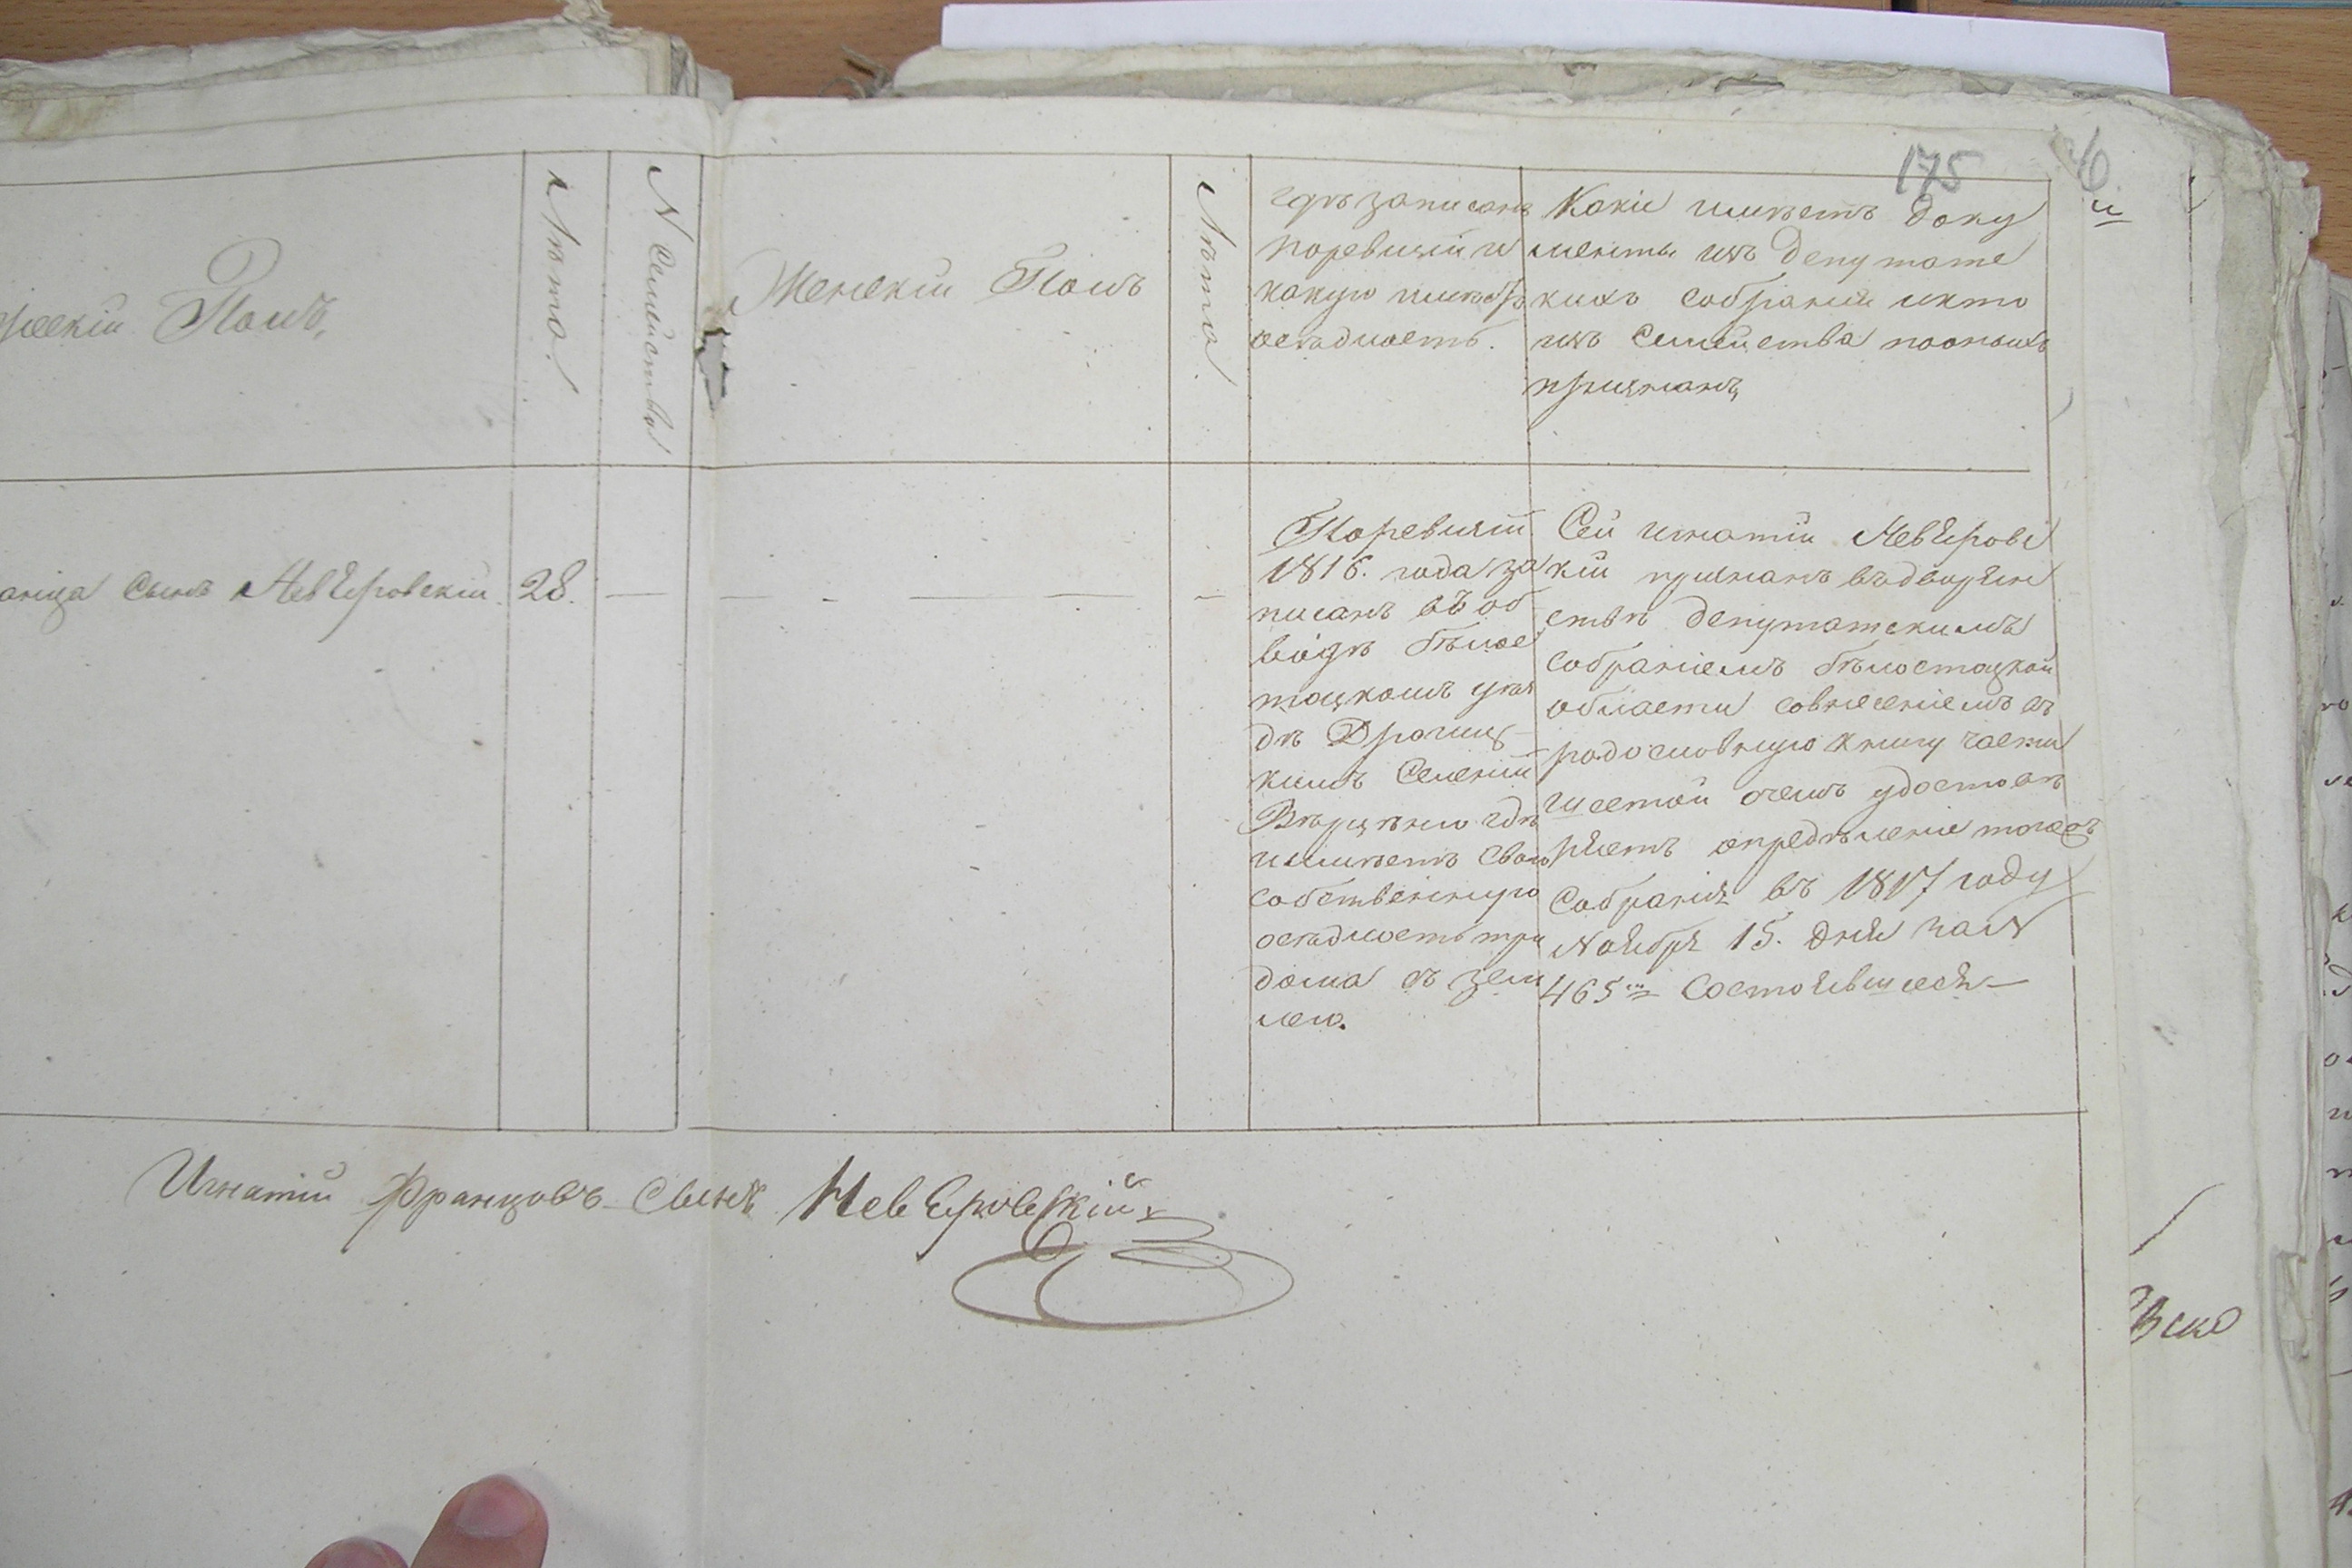 175
жескій Полъ,
Лѣта.
N Семейства
Женскій Полъ
Лѣта
гдѣ записанъ
поревизіи и
какую имѣетъ
осѣдлость.
Какіе имѣетъ Доку
менты изъ Депутатс
кихъ собраній икто
изъ Семейства поонымъ
признанъ
анца сынъ Невяровскій.
28.
Поревизіи
1816. года за
писанъ въ об
водѣ Бѣлос
тоцкомъ уѣз
дѣ Дрогиц
кимъ Селеніи
Вѣрцѣню гдѣ
имѣетъ свою
собственную
осѣдлость три
дома съ зем
лею.
Сей игнатій Невяровс
кій признанъ въдворян
ствѣ Депутатскимъ
Собраніемъ Бѣлостоцкой
области совнесеніемъ въ
родословную книгу части
шестой очемъ удостовѣ
ряетъ определеніе тогожъ
Собранія въ 1817 году
Ноября 15. дня заN
465мъ Состоявшееся
Игнатій Францовъ Сынъ Невяровскій
вско